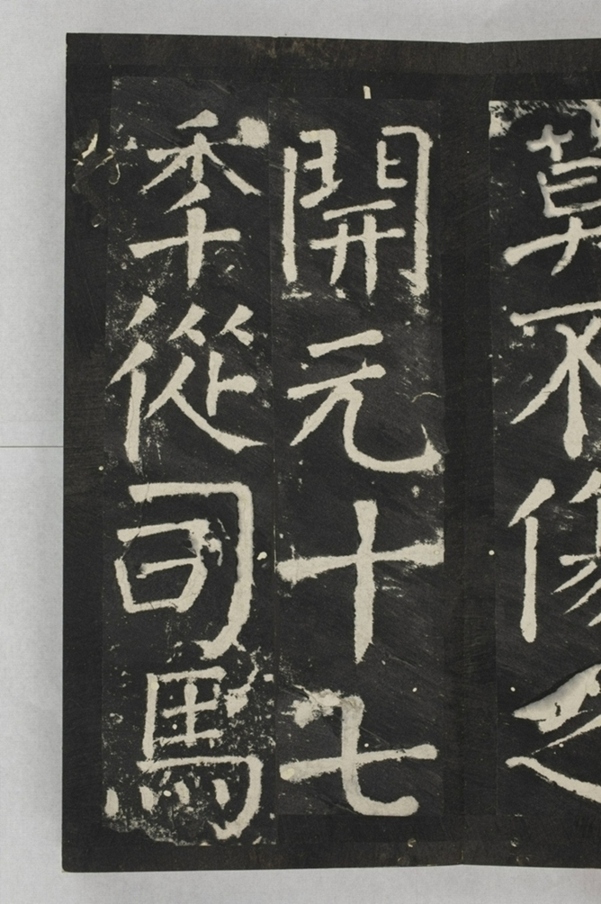 莫不傷之
開元十七
秊從司馬